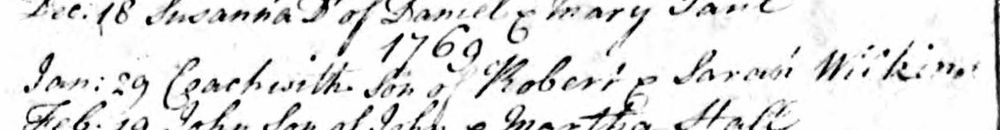 Dec: 18 Susanna Dr of Daniel & Mary
1769
Jan: 29 Coachwith Son of Robert & Sarah Wilkins
Feb: 19 John Son of John & Martha Hall